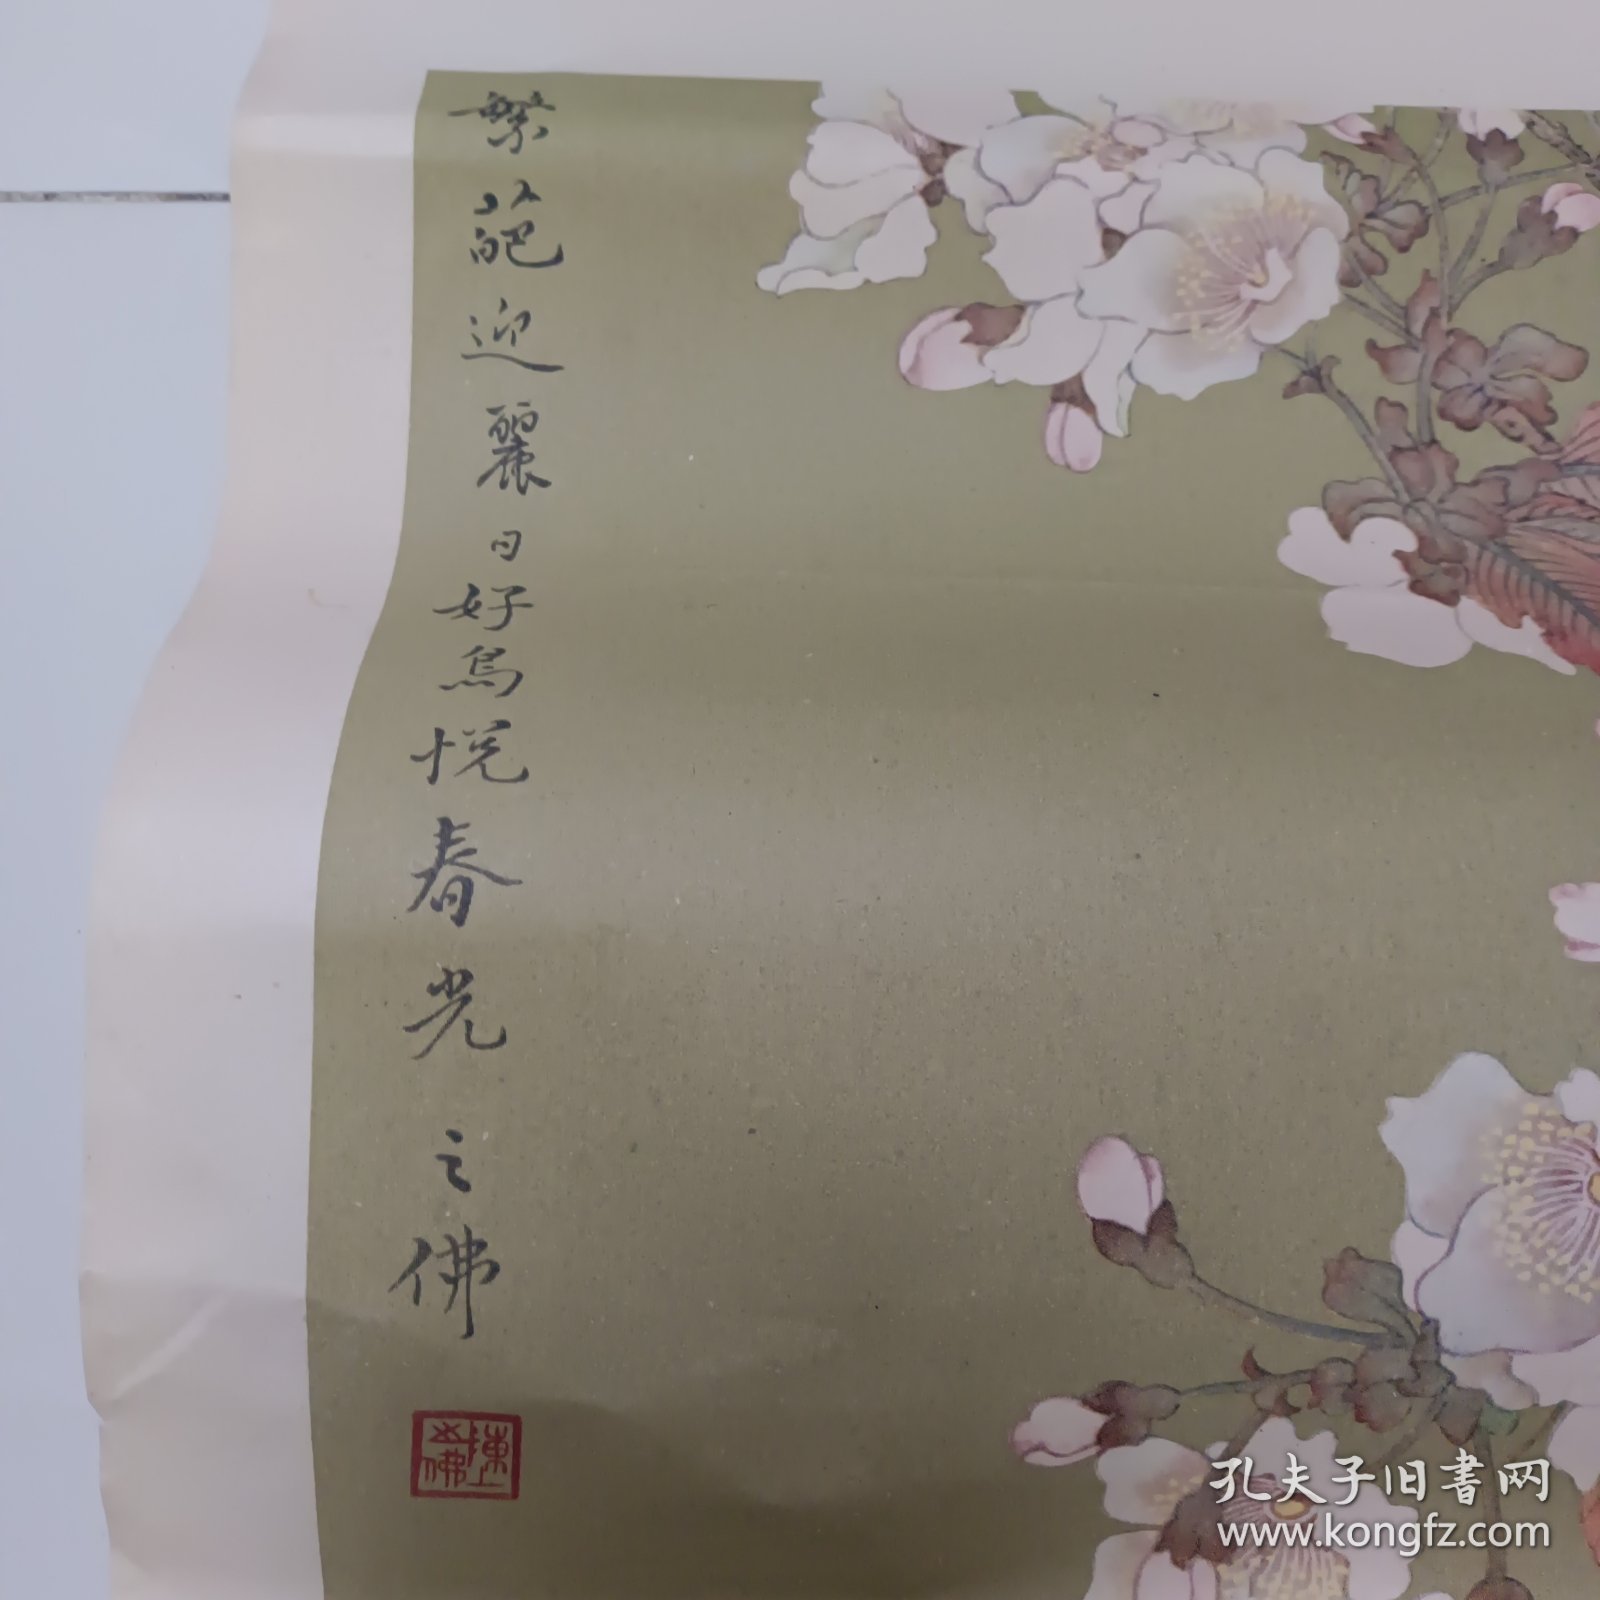 繁葩迎麗日好鳥悅春光之佛
陳之佛
孔夫子旧書网
www.kongfz.com